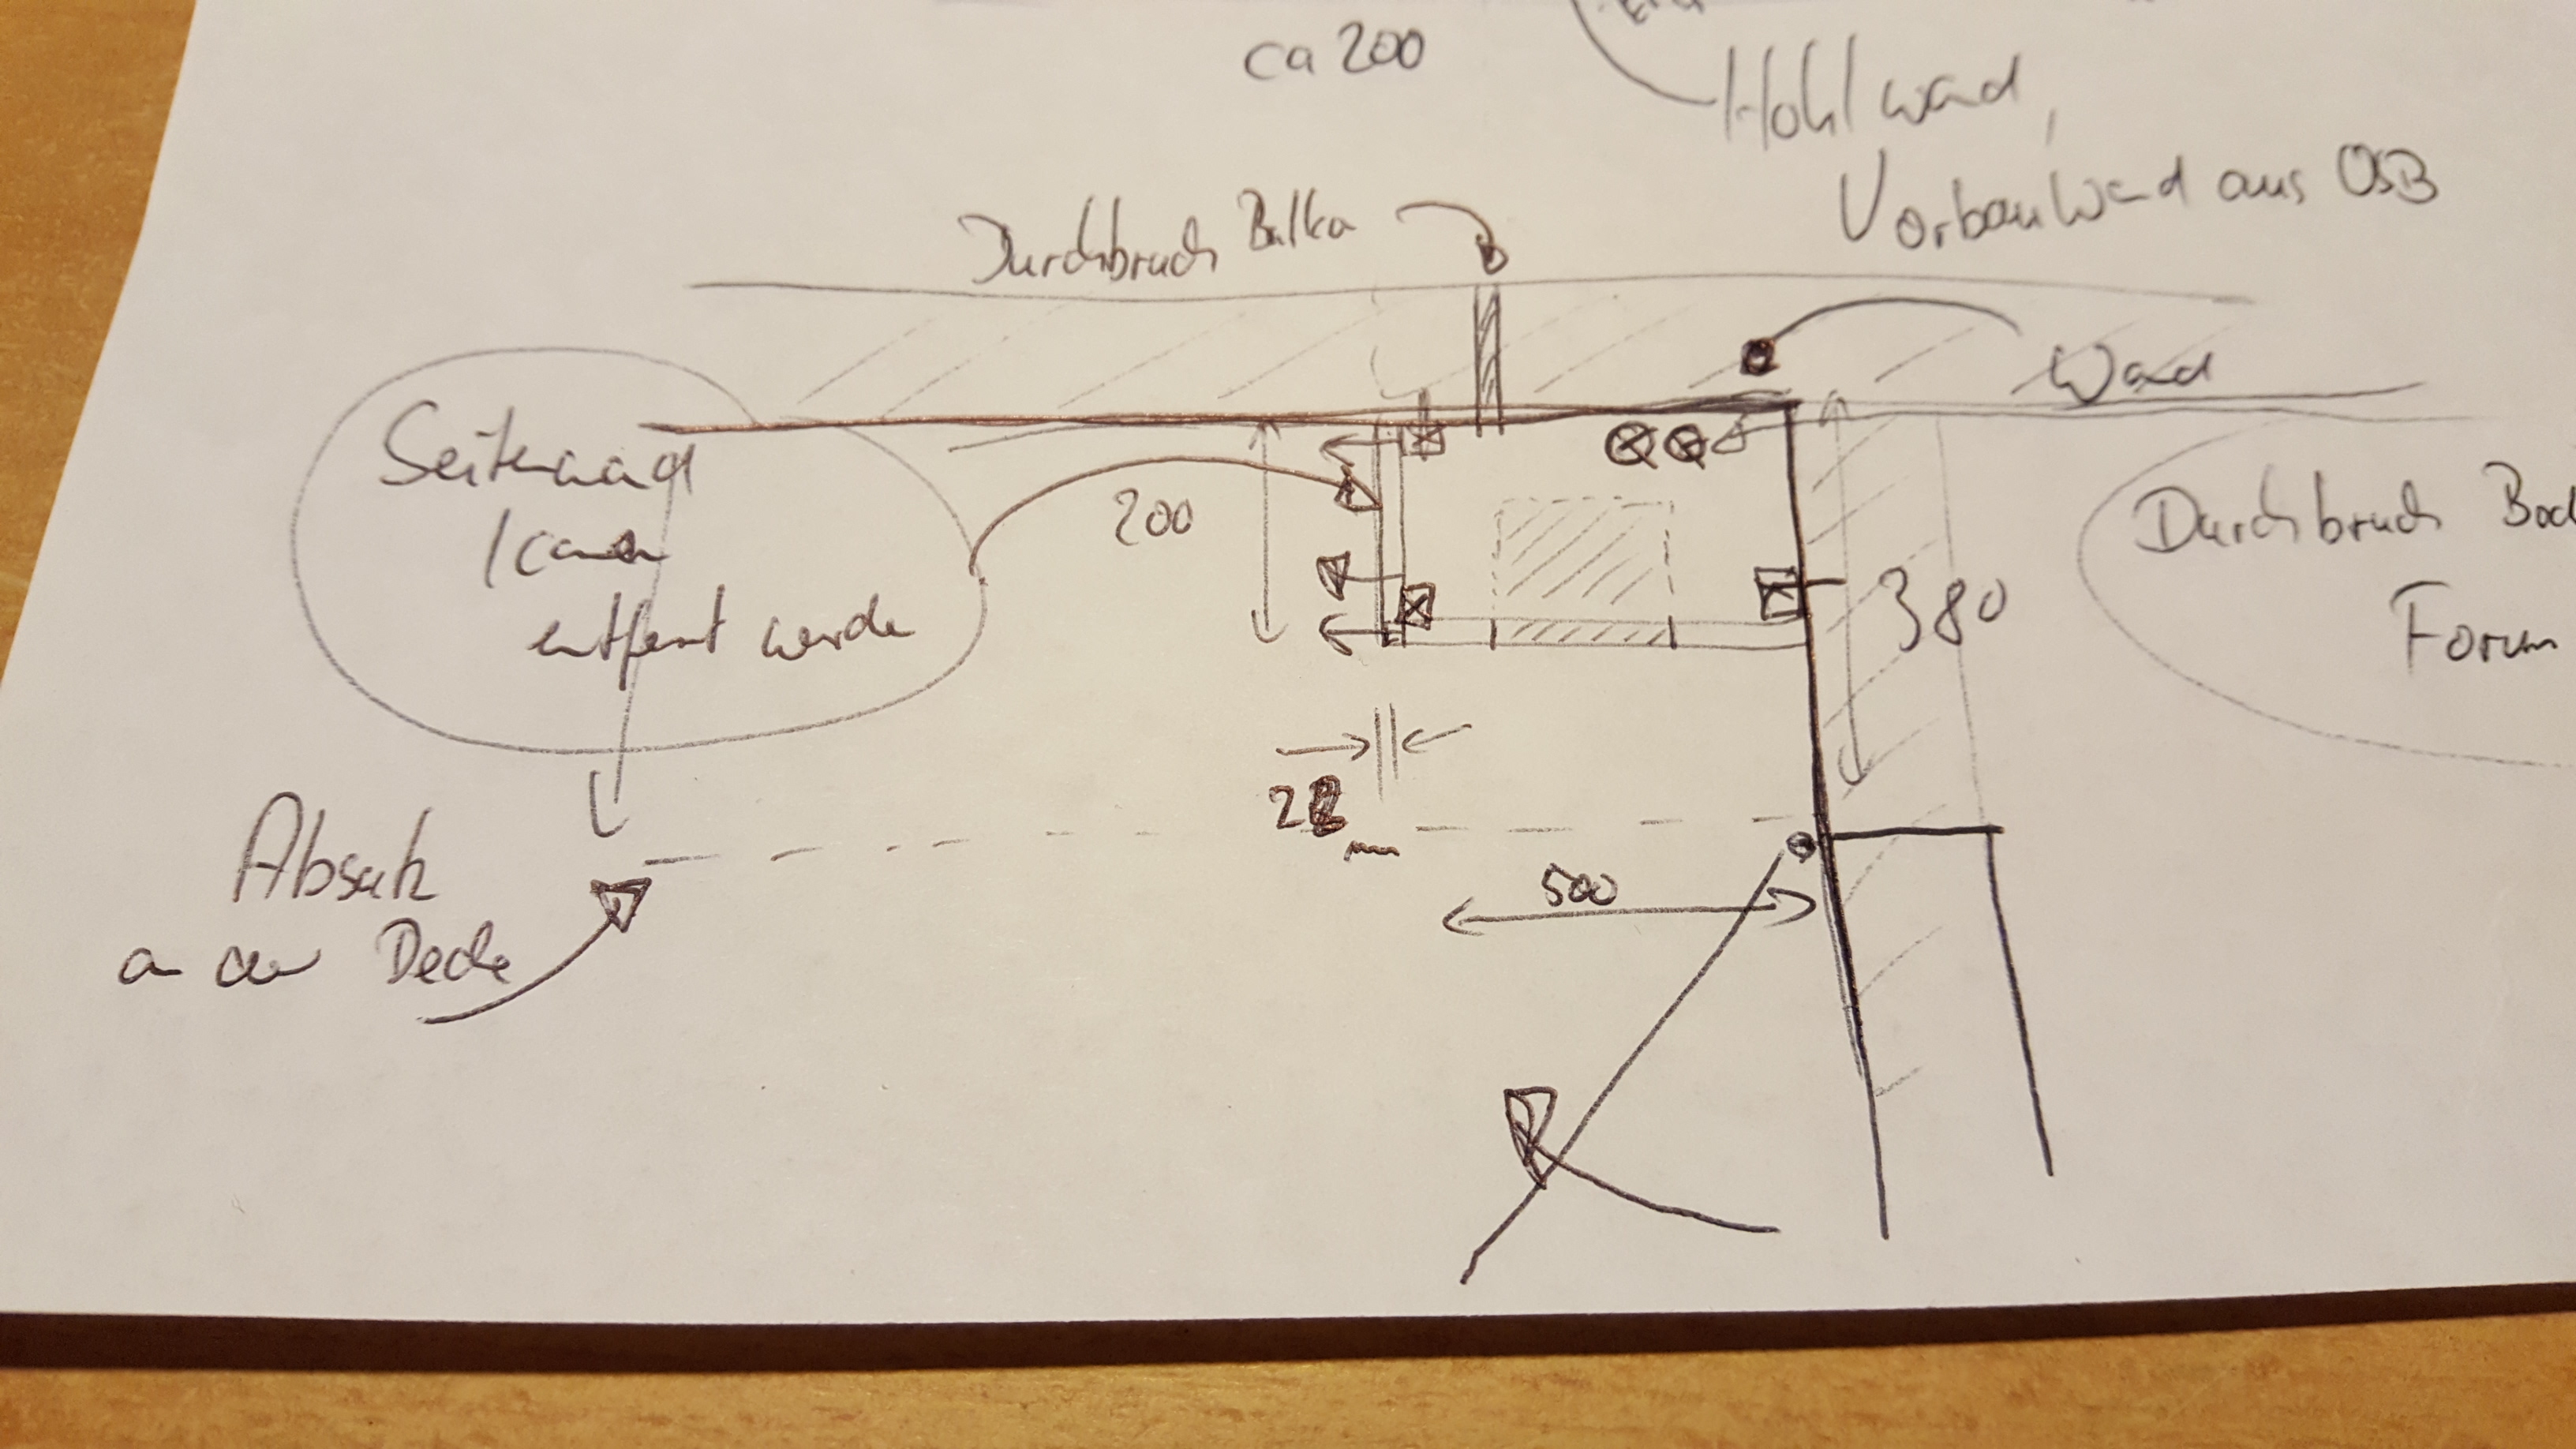 ca 200
Hohlwand,
Vorbauwand aus OSB
Durchbruch Balkon
Wand
Seitenwand
kann
entfernt werde
200
380
Durchbruch Bod
Forum
2
mm
500
Absatz
an der Decke